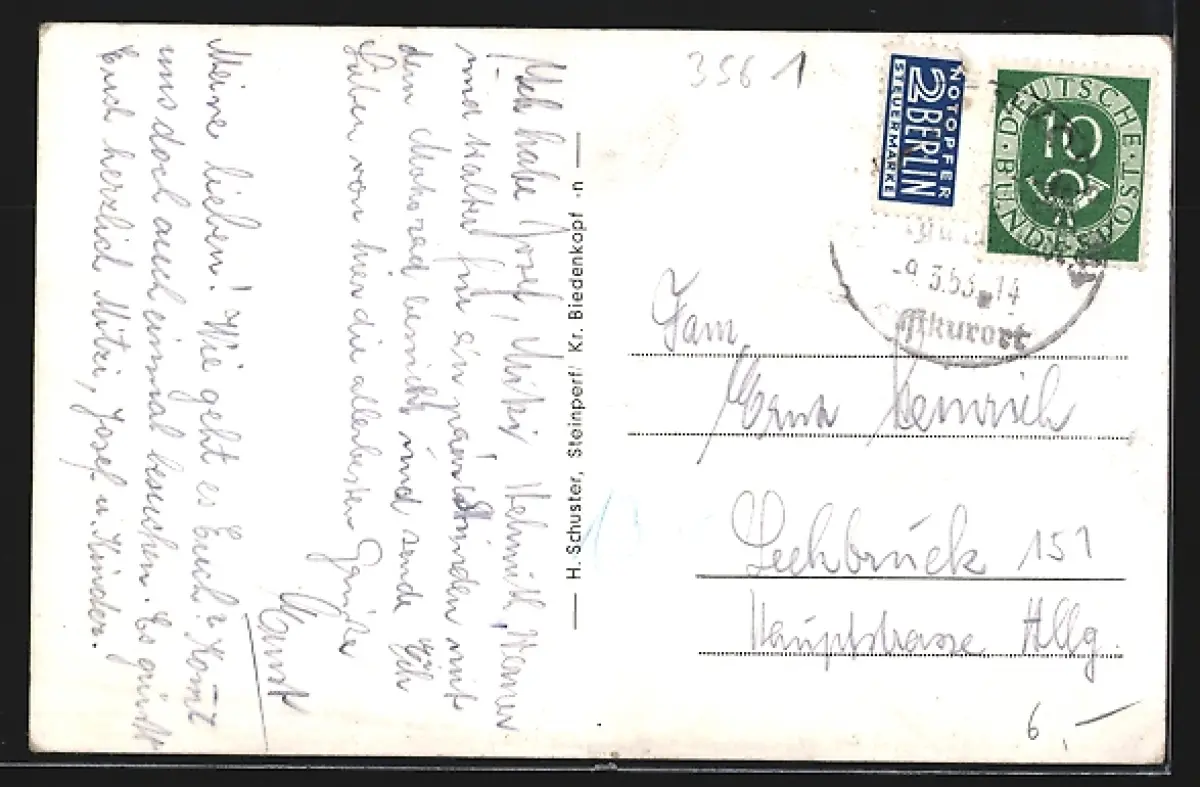 Ich habe Josef, Mitzi, Helmuth, Werner
und Walter für ein paar Stunden mit
dem Motorrad besucht, und sende Euch
Lieben von hier die allerbesten Grüße
Ernst
Meine lieben! Wie geht es Euch? Komt
uns doch auch einmal besuchen. Es grüßt
Euch herzlich Mitzi, Josef u. Kinder.
H. Schuster, Steinperf Kr. Biedenkopf -n
356 1
NOTOPFER
2 BERLIN
STEUERMARKE
DEUTSCHE BUNDESPOST
10
-9.3.53.-14
Luftkurort
Fam.
Ernst Heinrich
Lechbruck 151
Hauptstrasse Allg.
6,-